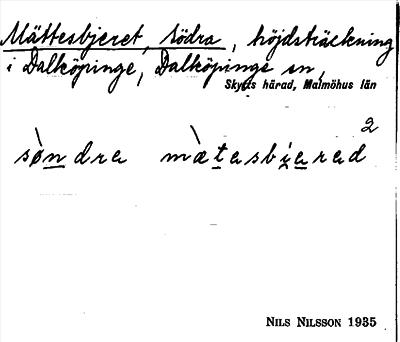 Mättesbjeret, södra, höjdsträckning
i Dalköpinge, Dalköpinge sn,
Skytts härad, Malmöhus län
2
sø̀ndra mæ̀tasbjarad
NILS NILSSON 1935